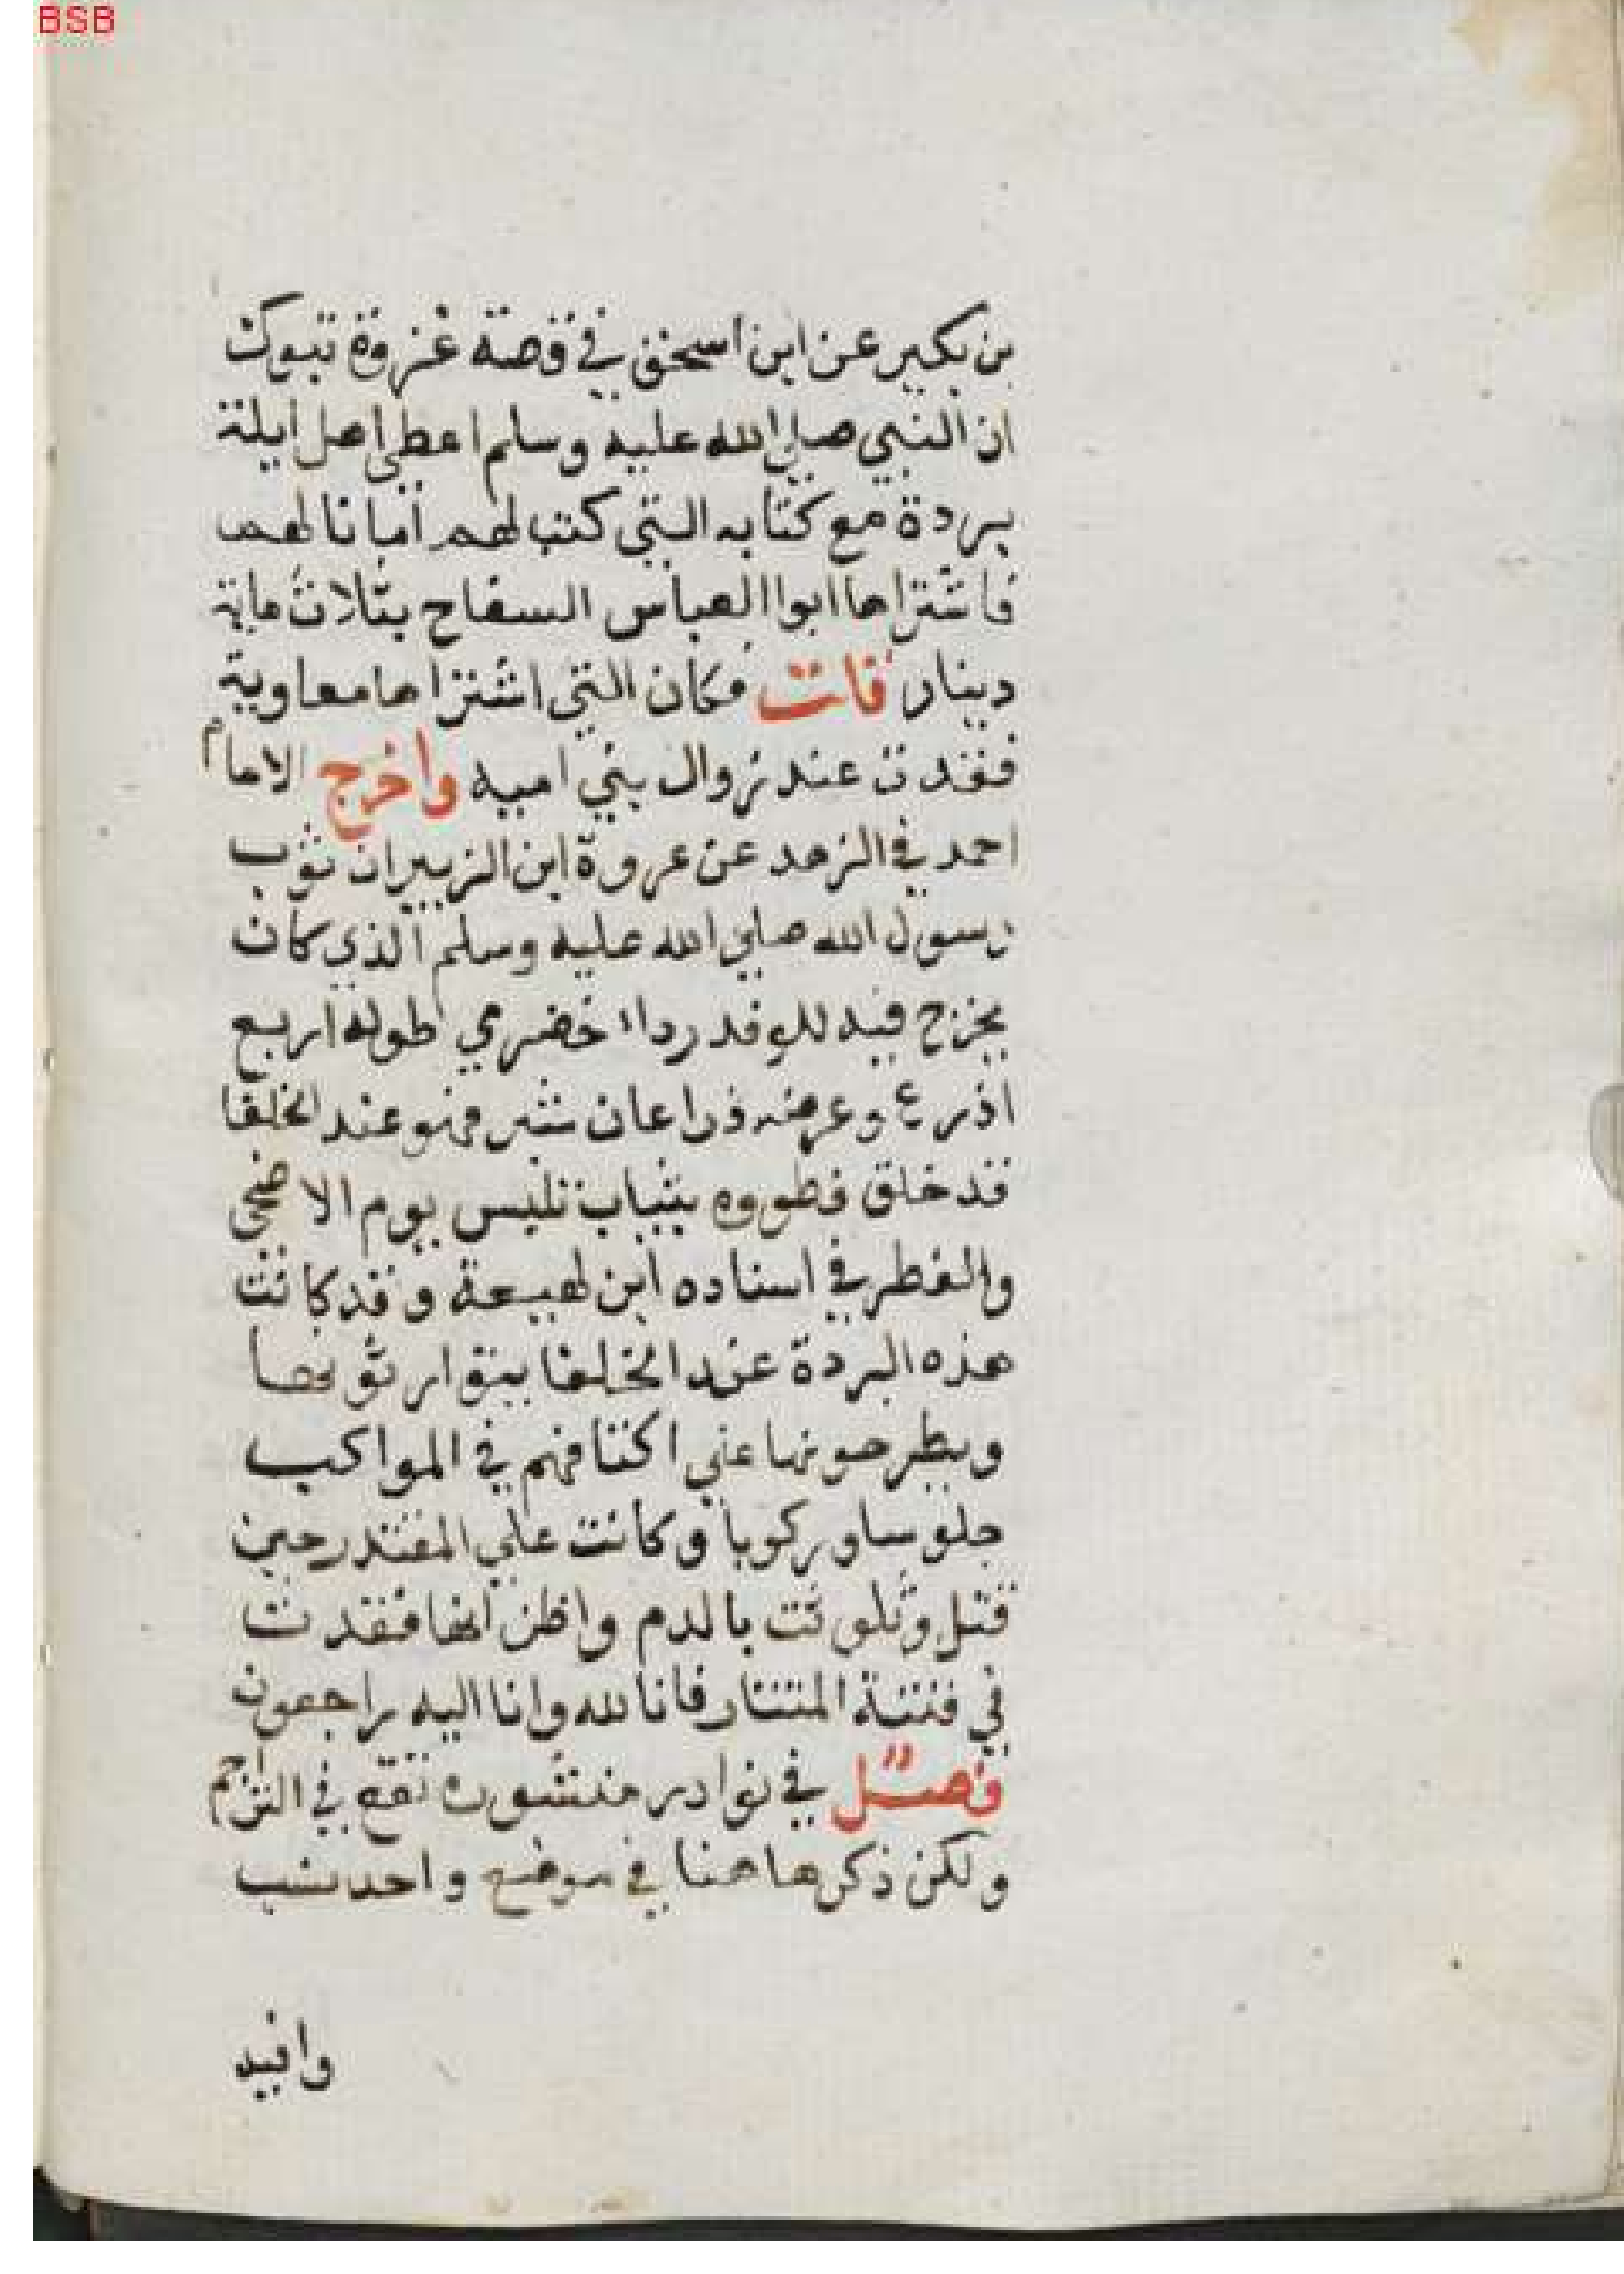 BSB
بن بكير عن ابن اسحق في قصة غزوة تبوك
ان النبي صلي الله عليه وسلم اعطي اهل ايلة
بردة مع كتابه التي كتب لهم امانا لهم
فاشتراها ابوا العباس السفاح بثلاث ماية
دينار قلت فكان التي اشتراها معاوية
ففقدت عند زوال بني اميه واخرج الامام
احمد في الزهد عن عروة ابن الزبير ان ثوب
رسول الله صلي الله عليه وسلم الذي كان
يخرج فيه للوفد رداء خضرمي طوله اربع
اذرع وعرضه ذراعان شبر فهو عند الخلفا
قد خلق فطووه بثياب تلبس يوم الاضحى
والفطر في اسناده ابن لهيعة وقد كانت
هذه البردة عند الخلفا يتوارثونها
ويطرحونها علي اكتافهم في المواكب
جلوسا وركوبا وكانت علي المقتدر حين
قتل وتلوثت بالدم واظن انها فقدت
في فتنة التتار فانا لله وانا اليه راجعون
فصل في نوادر منثورة تقع في التراجم
ولكن ذكرها هنا في موضع واحد نسب
وافيد